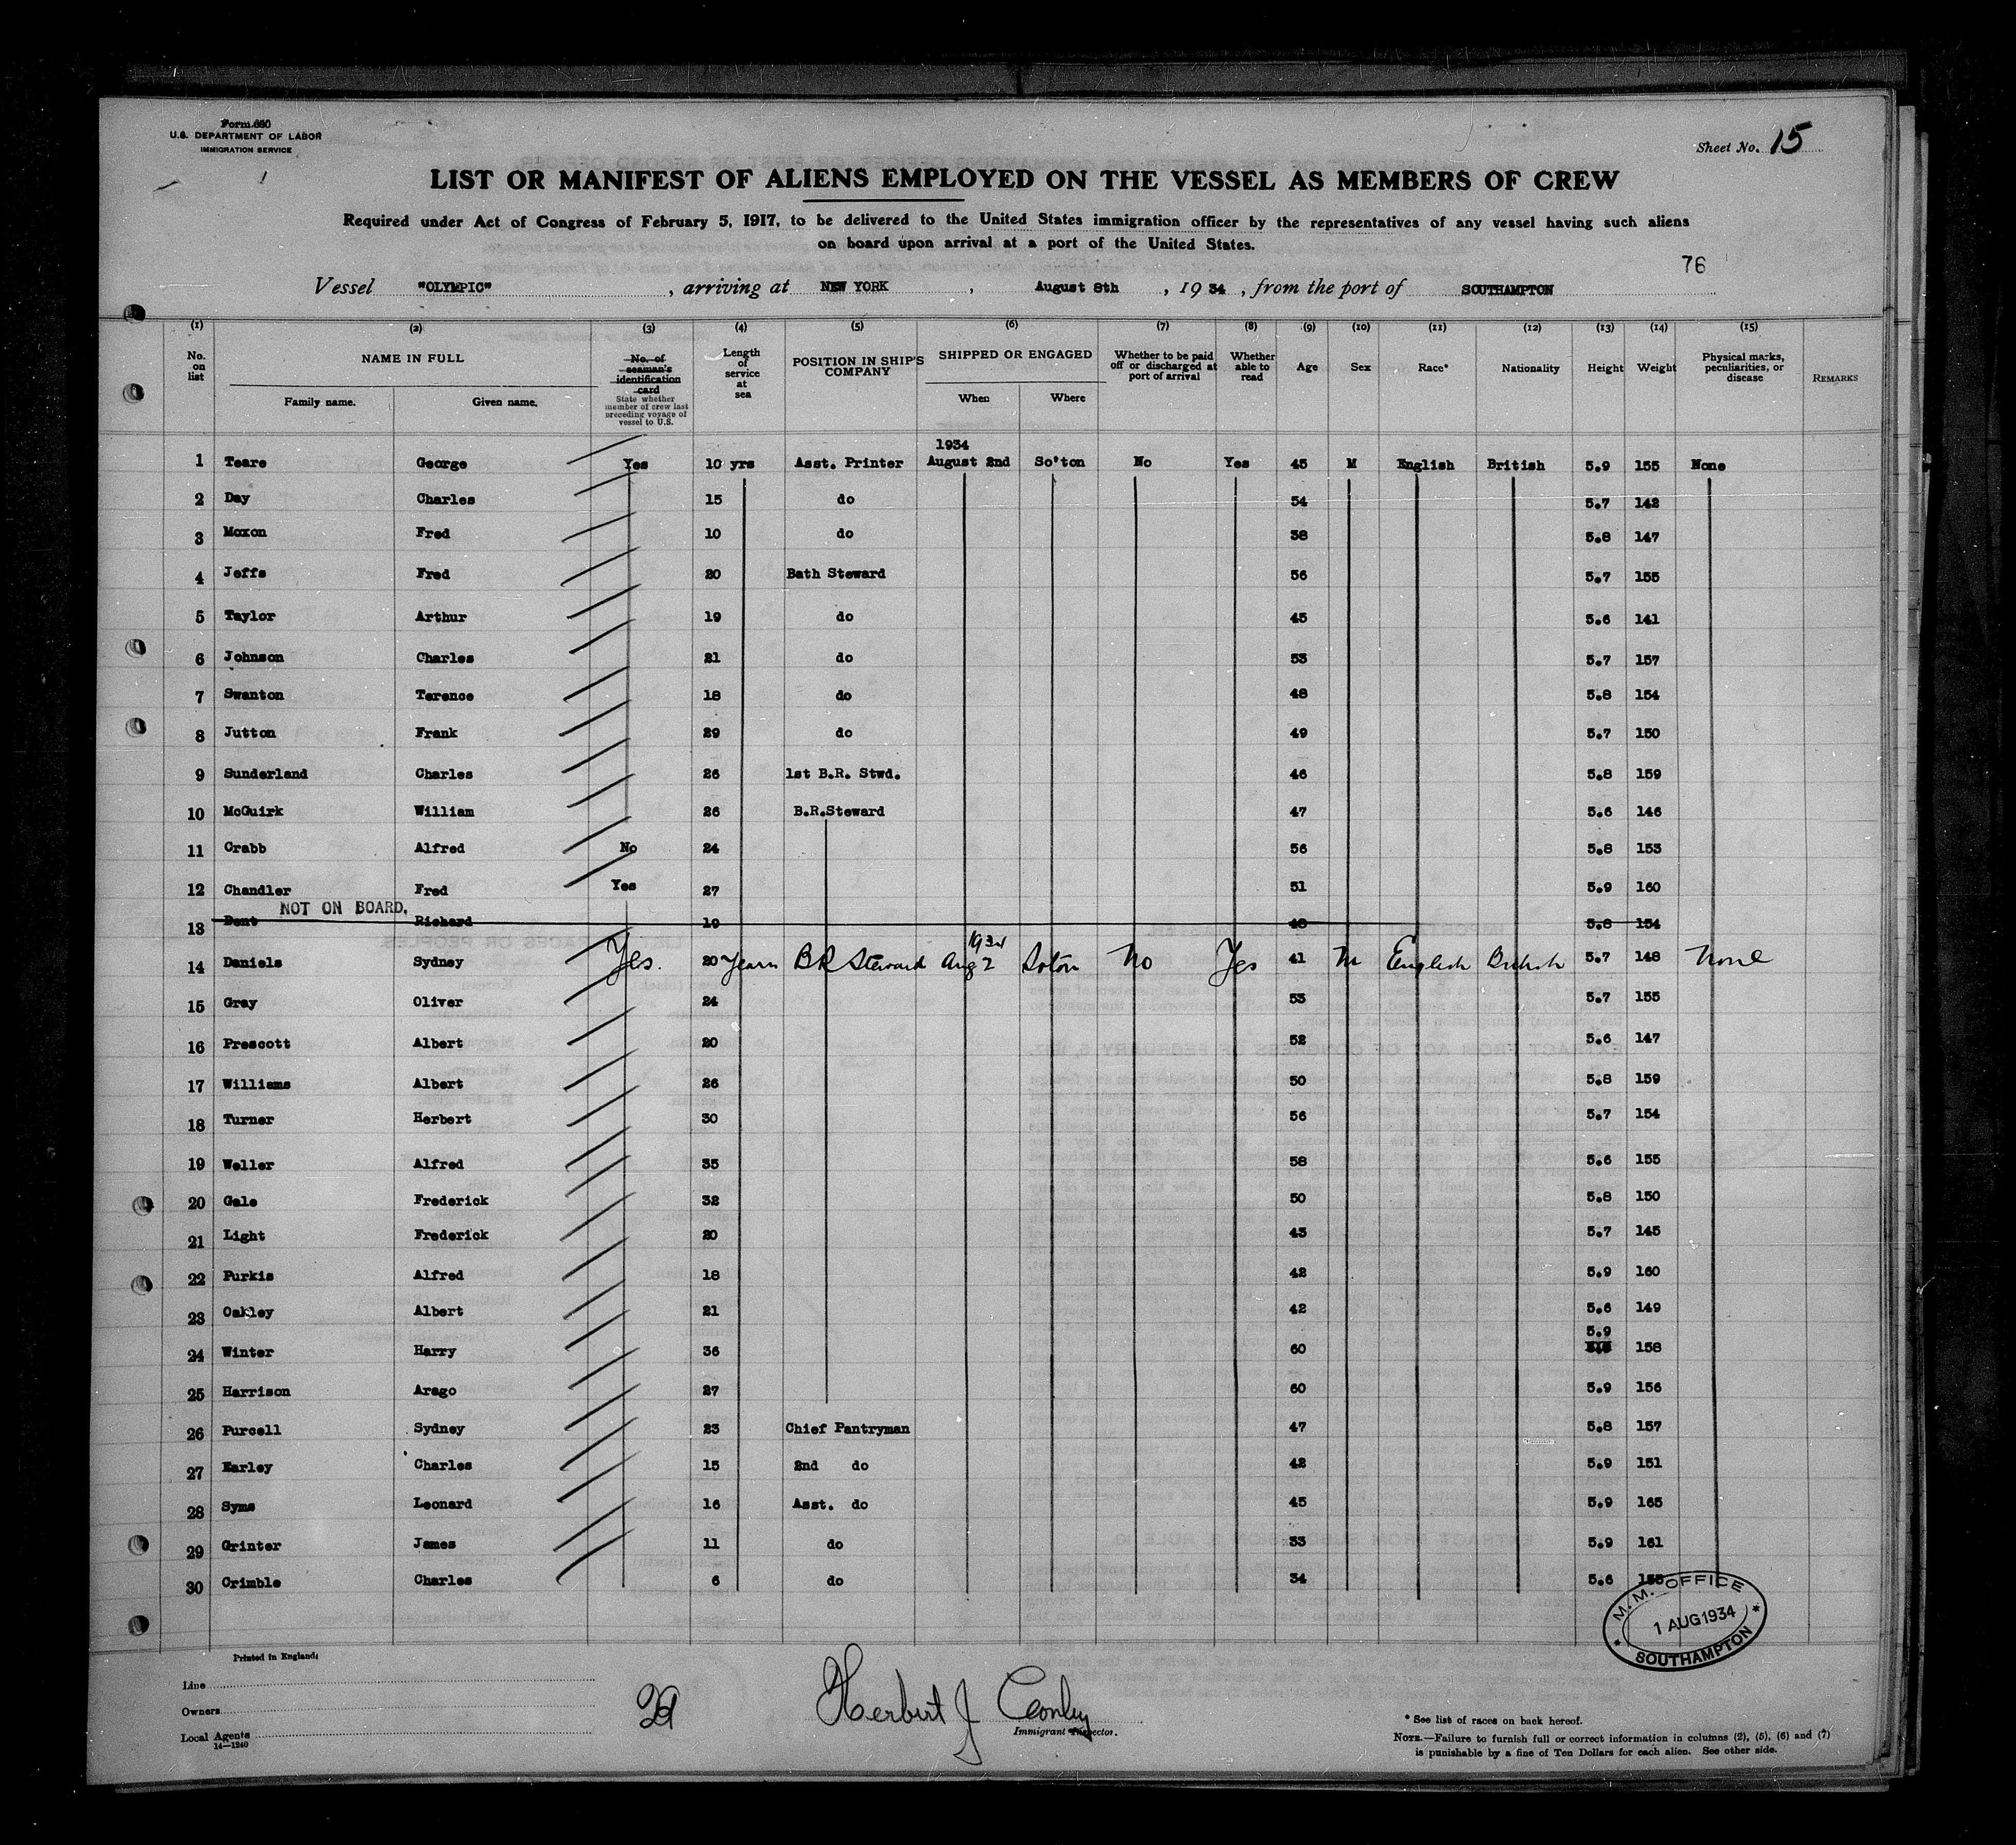 Form 680
U.S. DEPARTMENT OF LABOR
IMMIGRATION SERVICE
Sheet No. 15
LIST OR MANIFEST OF ALIENS EMPLOYED ON THE VESSEL AS MEMBERS OF CREW
Required under Act of Congress of February 5, 1917, to be delivered to the United States immigration officer by the representatives of any vessel having such aliens
on board upon arrival at a port of the United States.
76
Vessel "OLYMPIC", arriving at NEW YORK, August 8th, 1934, from the port of SOUTHAMPTON
(1) (2) (3) (4) (5) (6) (7) (8) (9) (10) (11) (12) (13) (14) (15)
No. on list NAME IN FULL Family name. Given name. No. of seaman's identification card State whether member of crew last preceding voyage of vessel to U.S. Length of service at sea POSITION IN SHIP'S COMPANY SHIPPED OR ENGAGED When Where Whether to be paid off or discharged at port of arrival Whether able to read Age Sex Race* Nationality Height Weight Physical marks, peculiarities, or disease REMARKS
1934
1 Teare George Yes 10 yrs Asst. Printer August 2nd So'ton No Yes 45 M English British 5.9 155 None
2 Day Charles 15 do 54 5.7 142
3 Moxon Fred 10 do 38 5.8 147
4 Jeffs Fred 20 Bath Steward 56 5.7 155
5 Taylor Arthur 19 do 45 5.6 141
6 Johnson Charles 21 do 53 5.7 157
7 Swanton Terence 18 do 48 5.8 154
8 Jutton Frank 29 do 49 5.7 150
9 Sunderland Charles 26 1st B.R. Stwd. 46 5.8 159
10 McGuirk William 26 B.R.Steward 47 5.6 146
11 Crabb Alfred No 24 56 5.8 153
12 Chandler Fred Yes 27 51 5.9 160
NOT ON BOARD.
13 Dent Richard 19 48 5.8 154
1934
14 Daniels Sydney Yes. 20 years BR Steward Aug 2 Soton No Yes 41 M English British 5.7 148 None
15 Gray Oliver 24 53 5.7 155
16 Prescott Albert 20 52 5.6 147
17 Williams Albert 26 50 5.8 159
18 Turner Herbert 30 56 5.7 154
19 Weller Alfred 35 58 5.6 155
20 Gale Frederick 32 50 5.8 150
21 Light Frederick 20 43 5.7 145
22 Purkis Alfred 18 42 5.9 160
23 Oakley Albert 21 42 5.6 149
5.9
24 Winter Harry 36 60 158
25 Harrison Arago 27 60 5.9 156
26 Purcell Sydney 23 Chief Pantryman 47 5.8 157
27 Earley Charles 15 2nd do 42 5.9 151
28 Syms Leonard 16 Asst. do 45 5.9 165
29 Grinter James 11 do 33 5.9 161
30 Crimble Charles 6 do 34 5.6 155
M.M. OFFICE
1 AUG 1934
SOUTHAMPTON
Printed in England.
Line
Owners
Local Agents
14—1240
29
Herbert J Conley
Immigrant Inspector.
* See list of races on back hereof.
NOTE.—Failure to furnish full or correct information in columns (2), (5), (6) and (7)
is punishable by a fine of Ten Dollars for each alien. See other side.